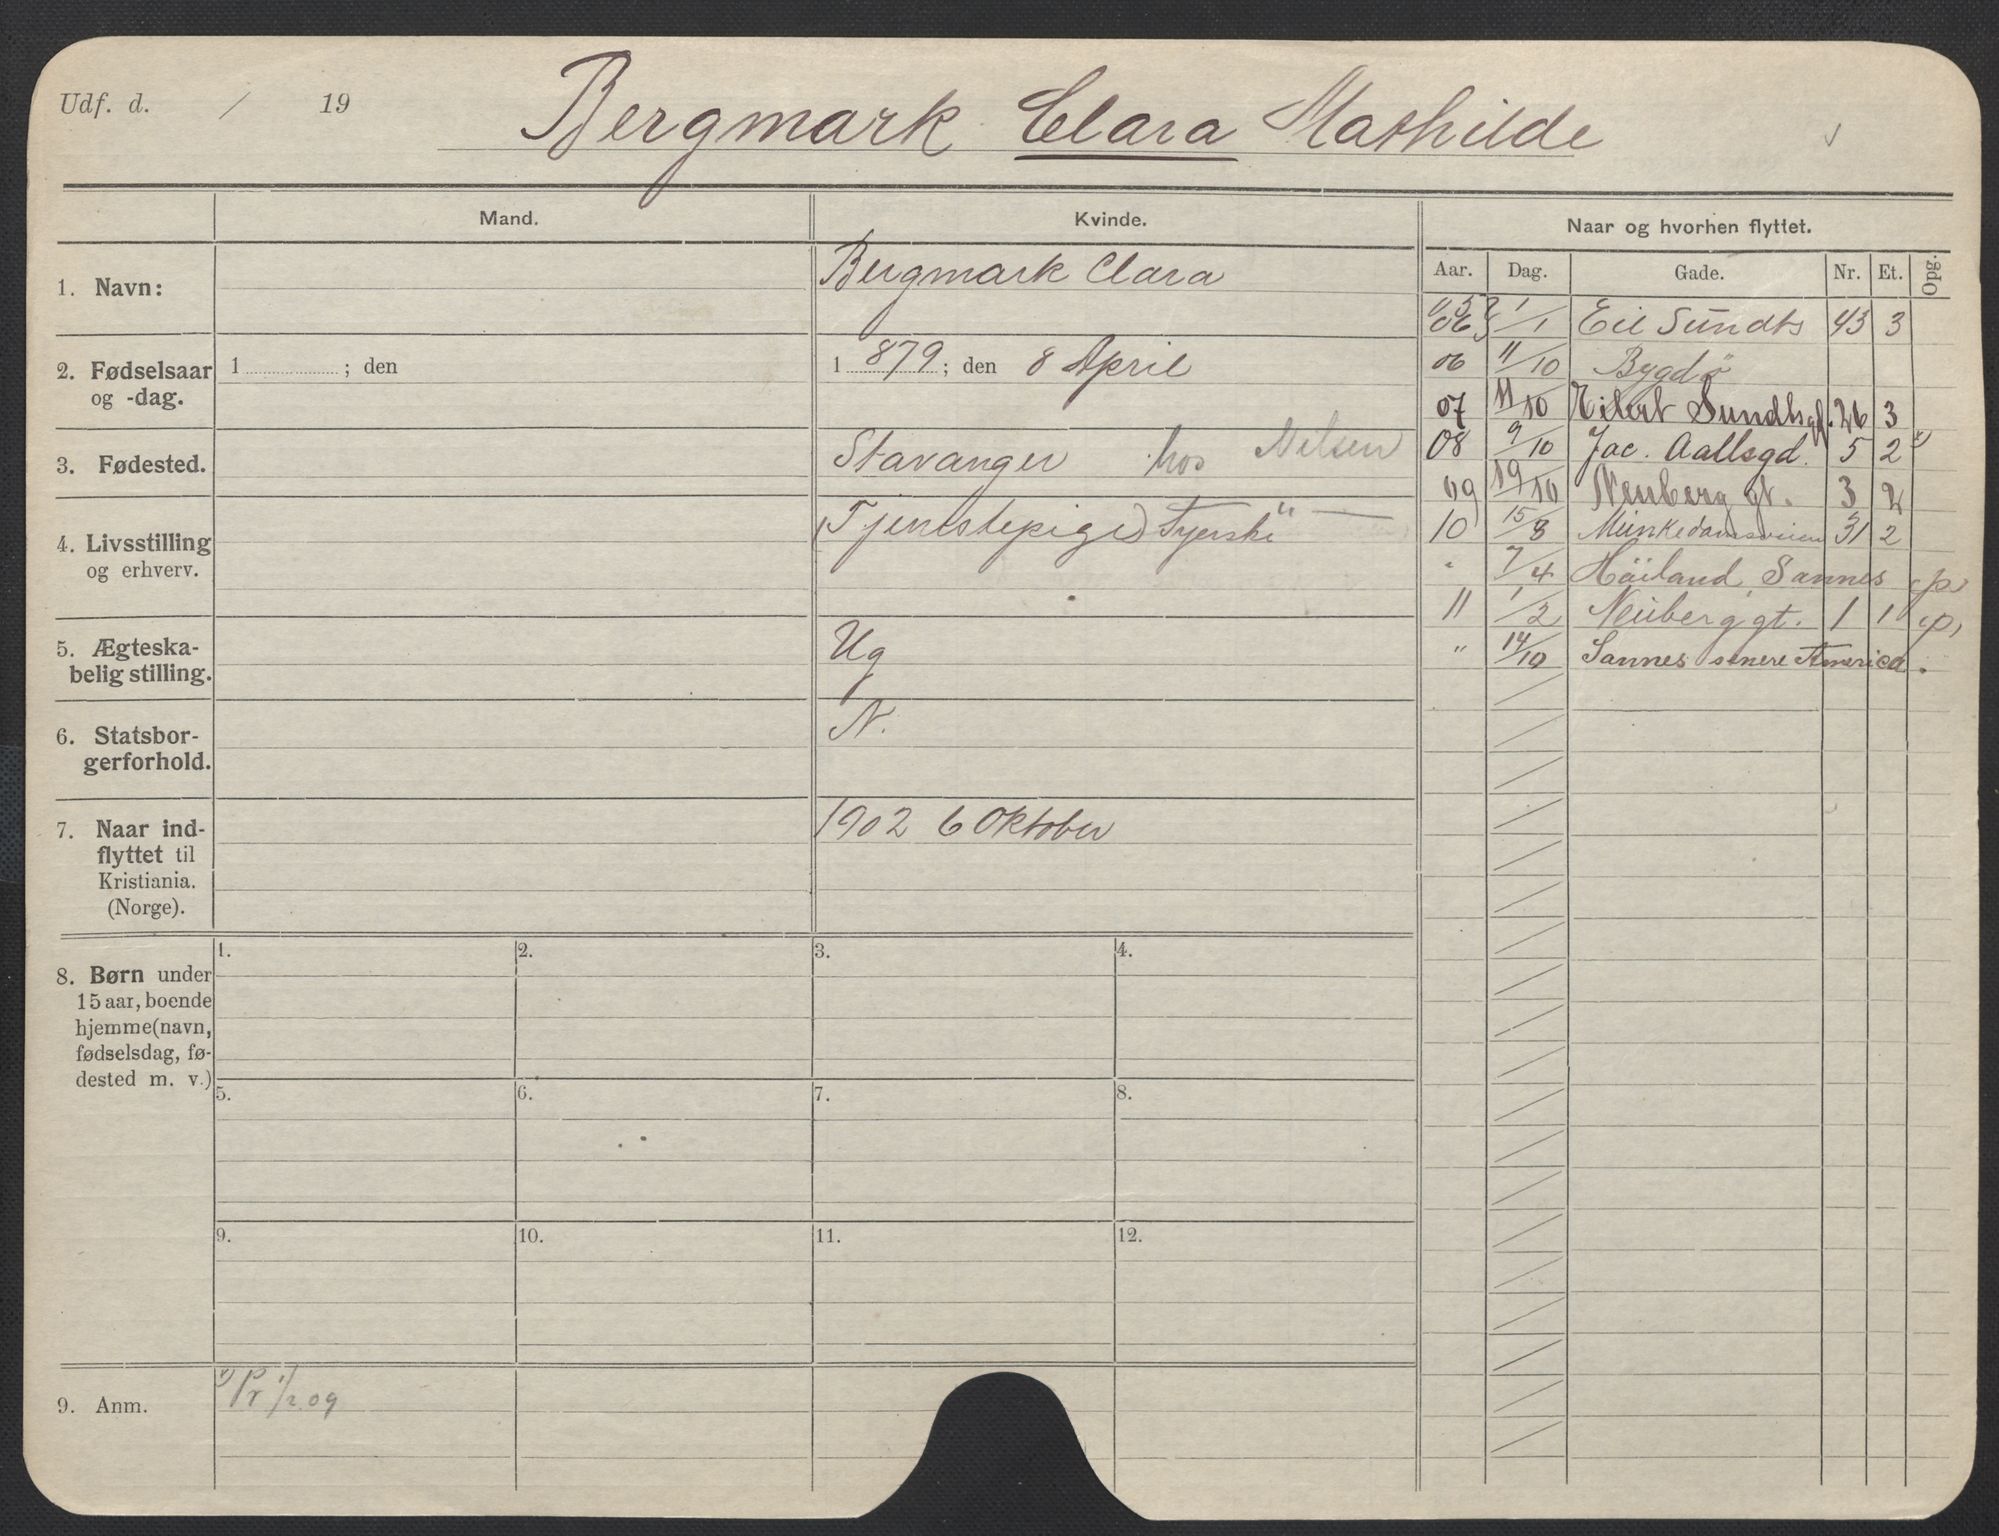 Udf. d. / 19
Bergmark Clara Mathilde
Mand.
Kvinde.
Naar og hvorhen flyttet.
Aar. Dag. Gade. Nr. Et. Opg.
1. Navn:
Bergmark Clara
2. Fødselsaar
og -dag.
1 ; den
1 879 ; den 8 April
3. Fødested.
Stavanger hos Nelsen
4. Livsstilling
og erhverv.
(Tjenestepige)
5. Ægteska-
belig stilling.
Ug
6. Statsbor-
gerforhold.
N.
7. Naar ind-
flyttet til
Kristiania.
(Norge).
1902 6 Oktober
06 1/1 Eil Sundts 43 3
06 11/10 Bygdø
07 11/10 Eilert Sundtsgd. 26 3
08 9/10 Jac. Aallsgd. 5 2 1)
09 19/10 Neuberg gt. 3 2
10 15/3 Munkedamsveien 31 2
" 7/4 Høiland, Sannes p
11 1/2 Neuberg gt. 1 1 p,
" 14/10 Sannes senere America.
8. Børn under
15 aar, boende
hjemme (navn,
fødselsdag, fø-
dested m. v.)
1. 2. 3. 4.
5. 6. 7. 8.
9. 10. 11. 12.
9. Anm.
1) Pr 1/2 09